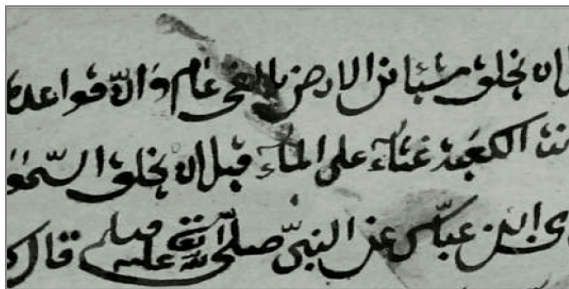 ان يخلق شيئا من الارض بالفى عام وان قواعده
الكعبة غثاء على الماء قبل ان يخلق السموا
ابن عباس عن النبي صلى الله عليه وسلم قال